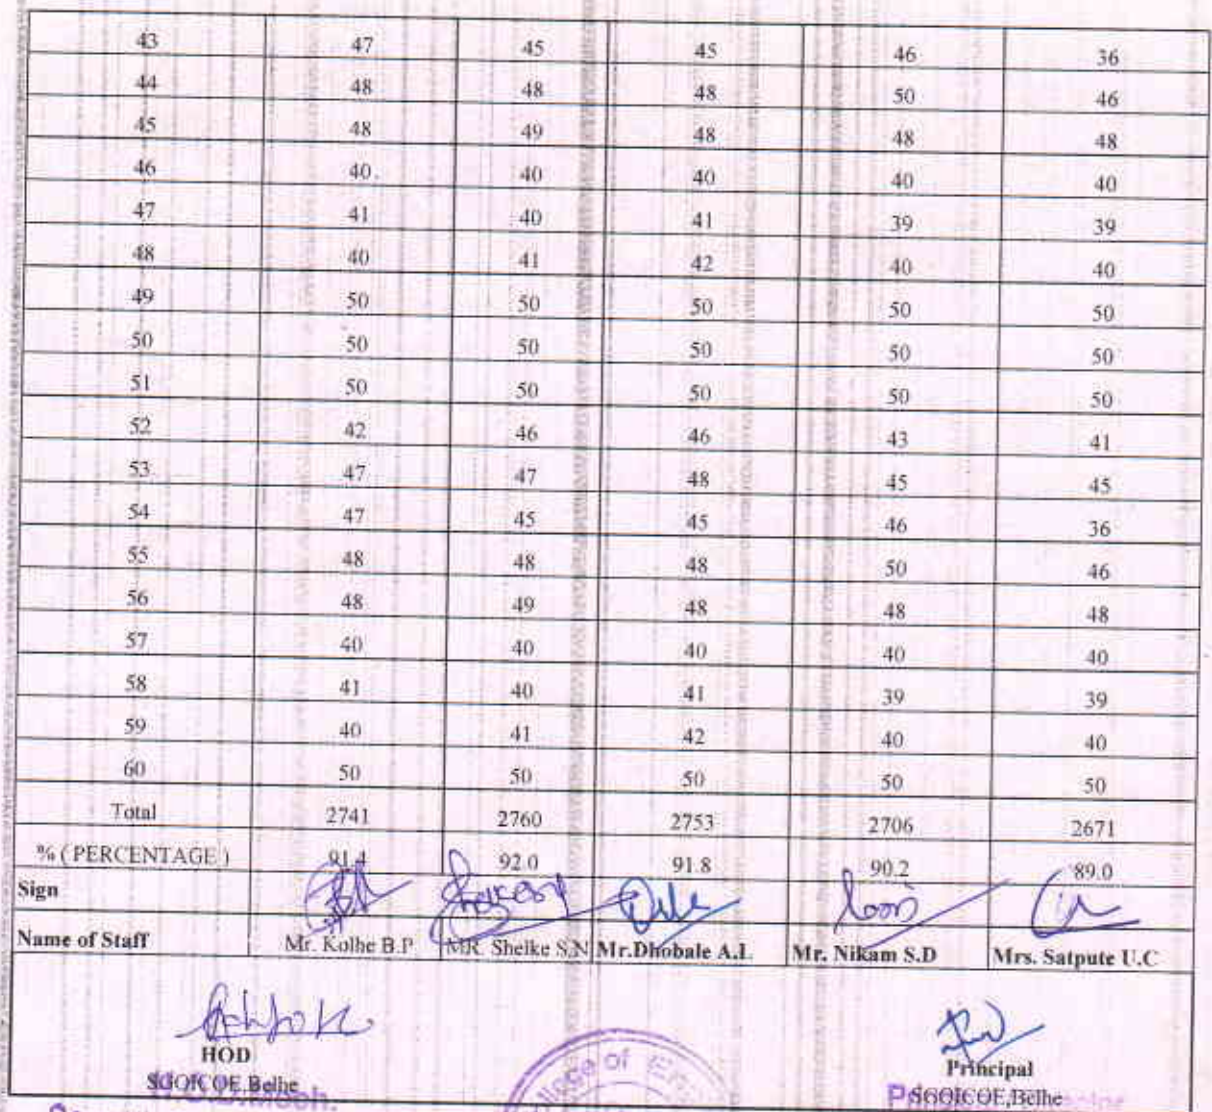 43 47 45 45 46 36
44 48 48 48 50 46
45 48 49 48 48 48
46 40 40 40 40 40
47 41 40 41 39 39
48 40 41 42 40 40
49 50 50 50 50 50
50 50 50 50 50 50
51 50 50 50 50 50
52 42 46 46 43 41
53 47 47 48 45 45
54 47 45 45 46 36
55 48 48 48 50 46
56 48 49 48 48 48
57 40 40 40 40 40
58 41 40 41 39 39
59 40 41 42 40 40
60 50 50 50 50 50
Total 2741 2760 2753 2706 2671
% ( PERCENTAGE ) 91.4 92.0 91.8 90.2 89.0
Sign
Name of Staff Mr. Kolhe B.P MR. Shelke S.N Mr.Dhobale A.L Mr. Nikam S.D Mrs. Satpute U.C
HOD Principal
SGOICOE,Belhe SGOICOE,Belhe
of